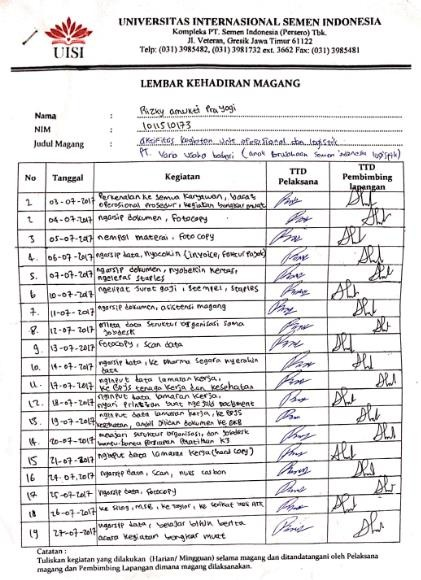 UISI
UNIVERSITAS INTERNASIONAL SEMEN INDONESIA
Kompleks PT. Semen Indonesia (Persero) Tbk.
Jl. Veteran, Gresik Jawa Timur 61122
Telp: (031) 3985482, (031) 3981732 ext. 3662 Fax: (031) 3985481
LEMBAR KEHADIRAN MAGANG
Nama : Rizky Prayogi
NIM : 1011510173
Judul Magang : kegiatan unit operasional dan logistik
PT. Varia Usaha (anak perusahaan semen indonesia logistik)
No Tanggal Kegiatan TTD Pelaksana TTD Pembimbing Lapangan
1 03-07-2017 Perkenalan ke semua karyawan, operasional prosedur, kegiatan bongkar muat
2 04-07-2017 ngarsip dokumen, fotocopy
3 05-07-2017 nempel materai, foto copy
4. 06-07-2017 ngarsip data, nyocokin (invoice, faktur pajak)
5. 07-07-2017 ngarsip dokumen, nyobekin kertas, ngelepas staples
6 10-07-2017 ngelipat surat gaji, stempel, staples
7. 11-07-2017 ngarsip dokumen, asistensi magang
8. 12-07-2017 data struktur organisasi sama jobdesk
9. 13-07-2017 fotocopy, scan data
10. 14-07-2017 ngarsip data, ke pharma segara nyerahin data
11. 17-07-2017 nginput data lamaran kerja, ke BPJS tenaga kerja dan kesehatan
12. 18-07-2017 nginput data lamaran kerja,
13. 19-07-2017 nginput data lamaran kerja, ke BPJS kesehatan, ambil cucian dokumen ke
14. 20-07-2017 struktur organisasi, dan jobdesk bantu-bantu persiapan pelatihan K3
15 21-07-2017 nginput data lamaran kerja (hard copy)
16 24-07-2017 ngarsip data, scan, carbon
17 25-07-2017 ngarsip data, fotocopy
18 26-07-2017 ke silog, ke
19 27-07-2017 ngarsip data, belajar bikin berita acara kegiatan bongkar muat
Catatan :
Tuliskan kegiatan yang dilakukan (Harian/ Mingguan) selama magang dan ditandatangani oleh Pelaksana
magang dan Pembimbing Lapangan dimana magang dilaksanakan.